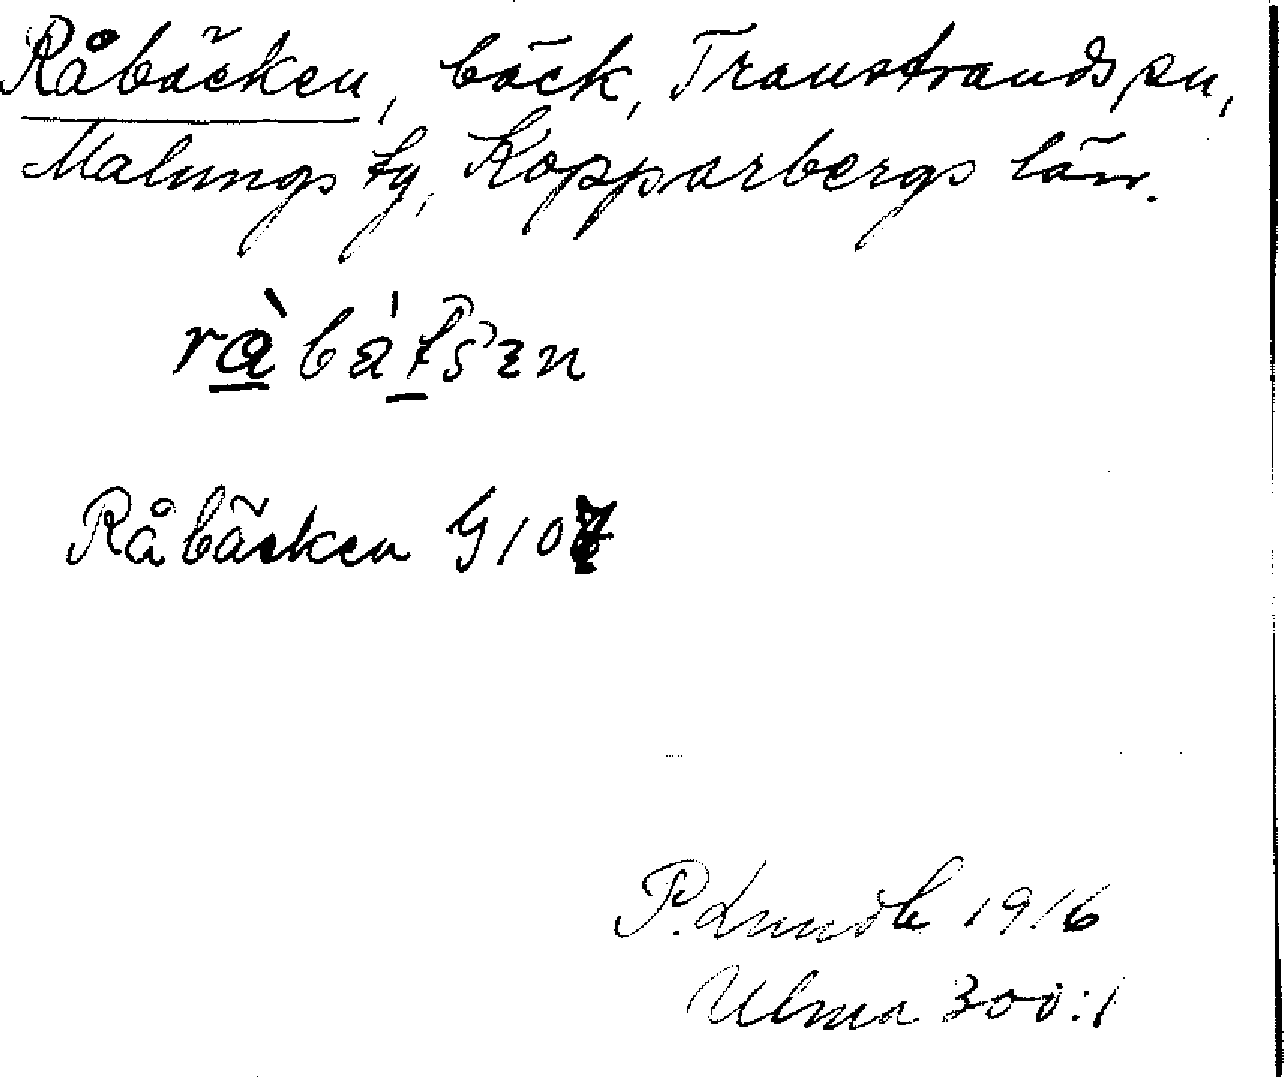 Råbäcken, bäck, Transtrands sn,
Malungs tg, Kopparbergs län.
rà̱bátsen
Råbäcken G 107
P. Lindb 1916
Ulma 300:1